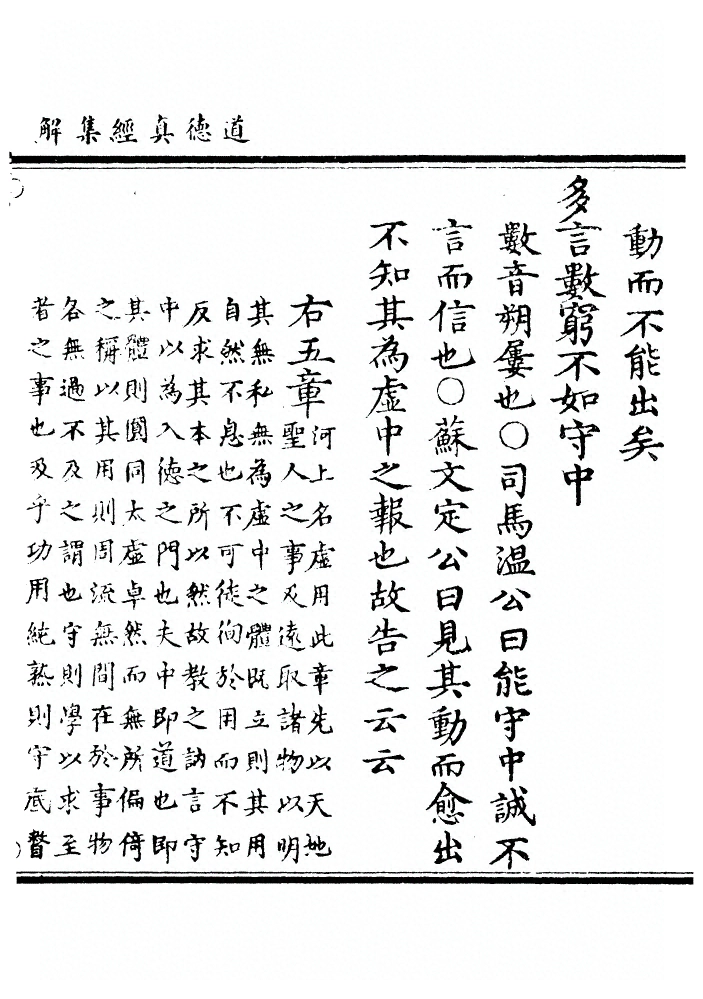 道德真經集解
動而不能出矣
多言數窮不如守中
數音朔屢也○司馬温公曰能守中誠不
言而信也○蘇文定公曰見其動而愈出
不知其為虛中之報也故告之云云
右五章河上名虛用此章先以天地
聖人之事及遠取諸物以明
其無私無為虛中之體既立則其用
自然不息也不可徒徇於用而不知
反求其本之所以然故教之訥言守
中以為入德之門也夫中即道也即
其體則圓同太虛卓然而無所偏倚
之稱以其用則周流無間在於事物
各無過不及之謂也守則學以求至
者之事也及乎功用純熟則守底瞥